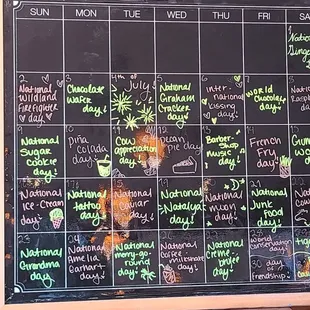 SUN MON TUE WED THU FRI
2
National
Wildland
Firefighter
day!
Chocolate
Wafer
day!
4th of
July
5
National
Graham
Cracker
day!
6
inter-
national
kissing
day!
7
World
Chocolate
day!
9
National
Sugar
Cookie
day!
Piña
Colada
day!
11
Cow
appreciation
day!
12
Pecan
Pie
day!
Barber-
Shop
Music
day!
French
Fry
day!
National
Ice-Cream
day!
National
tattoo
day!
National
Caviar
day!
19
National
Natalya
day!
National
moon
day!
21
National
Junk
Food
day!
23
National
Grandma
day!
24
National
Amelia
Earhart
day!
National
merry-go-
round
day!
National
Coffee
milkshake
day!
National
Creme-
brulee
day!
28
World
Conservation
day!
30 day
of
Friendship!